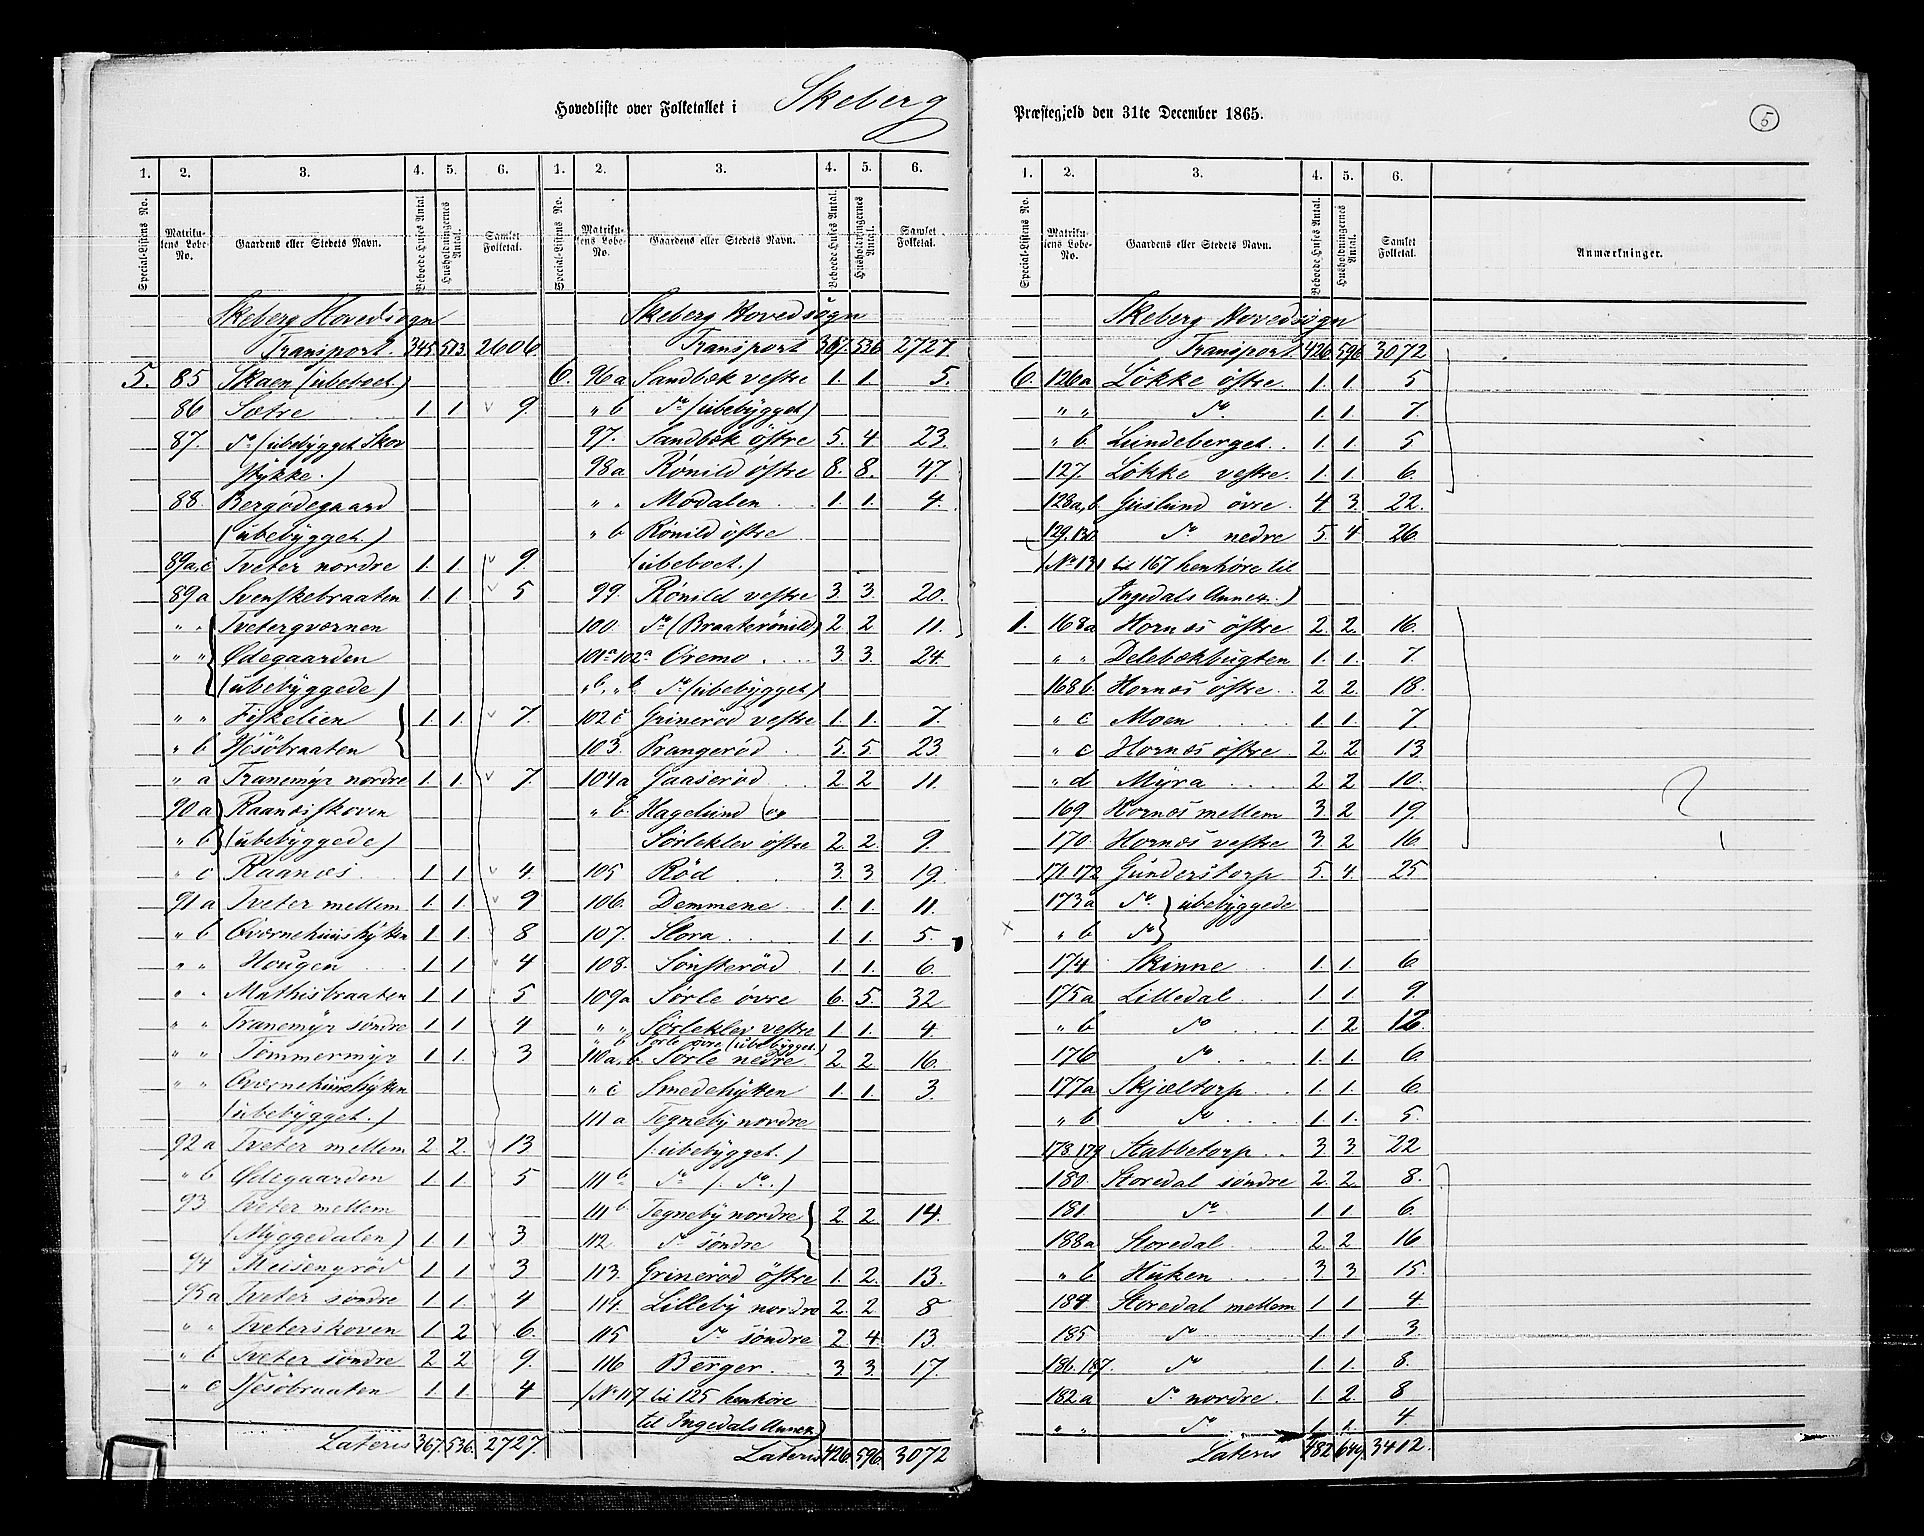 Hovedliste over Folketallet i Skeberg
1. 2. 3. 4. 5. 6. 1. 2. 3. 4. 5. 6.
Special-Listens No. Matrikulens Løbe-No. Gaardens eller Stedets Navn. Beboede Huses Antal. Husholdningernes Antal. Samlet Folketal. Special-Listens No. Matrikulens Løbe-No. Gaardens eller Stedets Navn. Beboede Huses Antal. Husholdningernes Antal. Samlet Folketal.
Skeberg Hovedsogn
Transport. 345. 513. 2606.
5. 85 Skaen (ubeboet.)
86 Sætre 1. 1 9.
87. Do (ubebygget Skov
stykke.)
88. Bergødegaard
(ubebygget.)
89a,c Tveter nordre 1. 1. 9.
89a Svenskebraaten 1. 1 5
" " Tvetergværnen
" " Ødegaarden
(ubebyggede)
" " Fiskelien 1. 1. 7.
" b Hjesöbraaten
" a Tranemyr nordre 1. 1. 7.
90a Raanæsskoven
" b (ubebyggede)
" c Raanæs 1 1 4.
91a Tveter mellem 1. 1. 9
" b Qværnehuushytten 1 1. 8
" " Hougen 1 1 4
" " Mathisbraaten 1 1 5
" " Tranemyr søndre 1 1 4
" " Tømmermyr 1 1. 3
" " Qværnehuushytten
(ubebygget.)
92a Tveter mellem 2 2. 13
" b Ødegaarden 1 1. 5
93 Tveter mellem
(Myggedalen) 1. 1. 3
94 Meisengröd 1 1 3
95a Tveter søndre 1 1. 4
" " Tveterskoven 1. 2 6.
" b Tveter søndre 2 2 9.
" c Hjesöbraaten 1. 1. 4
Lateris 367. 536. 2727.
Skeberg Hovedsøgn
Transport 367. 536 2727.
6. 96a Sandbæk vestre 1. 1. 5.
" b Do (ubebygget)
97. Sandbæk östre 5. 4 23.
98a Rönild östre 8. 8. 47.
" " Modalen 1. 1. 4.
" b Rönild östre
(ubeboet.)
99. Rönild vestre 3. 3. 20.
100. Do (Braaterönild) 2. 2 11.
101a 102a Oremo 3. 3. 24.
" b, " b. Do (ubebygget)
102c Grineröd vestre 1. 1. 7.
103. Prangeröd 5. 5. 23
104a Gaaseröd 2. 2 11.
" b. Hagelund (og
Sörleklev östre 2. 2. 9.
105 Röd 3. 3 19.
106. Demmene 1. 1. 11.
107. Slora 1. 1. 5.
108. Sönsteröd 1. 1. 6.
109a Sörle övre 6. 5. 32
" " Sörleklev vestre 1. 1. 4.
" b Sörle övre (ubebygget.)
110a, b. Sörle nedre 2. 2. 16.
" c Smedehytten 1. 1. 3.
111a Tegneby nordre
(:ubebygget.)
111b Do (: Do.)
111b. Tegneby nordre 2. 2. 14.
112. Do søndre
113. Grineröd östre 1. 2. 13.
114. Lilleby nordre 2. 2. 8
115 Do søndre 2 4. 13.
116 Berger 3 3. 17.
(No 117 til 125 henhøre
til Ingedals Annex)
Lateris 426. 596. 3072
Præstegjeld den 31te December 1865.
5
1. 2. 3. 4. 5. 6.
Special-Listens No. Matrikulens Løbe-No. Gaardens eller Stedets Navn. Beboede Huses Antal. Husholdningernes Antal. Samlet Folketal. Anmærkninger.
Skeberg Hovedsögn
Transport 426. 596 3072
6. 126a Lökke östre 1. 1 5
" " Do 1. 1. 7.
" b Lundeberget. 1. 1. 5
127. Lökke vestre. 1. 1. 6.
128a,b Guslund övre 4 3. 22.
129.130 Do nedre 5. 4 26.
(No 131 til 167 henhøre til
Ingedals Annex.)
1. 168a Hornæs östre. 2. 2. 16.
" " Delebækbugten 1. 1. 7.
168b. Hornæs östre 2 2. 18.
" c Moen 1. 1. 7
" c Hornæs östre. 2. 2 13
" d Myra 2 2 10.
169. Hornæs mellem 3. 2 19.
170. Hornæs vestre 3. 2 16
171.172 Gunderstorp 5. 4. 25
173a Do ubebyggede
" b Do
174 Skinne 1. 1. 6.
175a Lilledal 1. 1. 9.
" b Do 1. 2 12
176 Do 1. 1. 6.
177a Skjæltorp 1. 1. 6.
" b Do 1. 1. 5.
178.179 Stabbetorp 3. 3 22
180. Storedal søndre 2. 2. 8.
181 Do 1. 1. 6.
188a Storedal 2. 2 16
" b Huken 3 3 15.
184 Storedal mellem 1. 1 4.
185 Do 1. 1 3.
186.187. Do 1. 1. 8.
182a Do nordre. 1. 2. 8
" " Do 1. 1. 4.
Lateris 482 649. 3412.